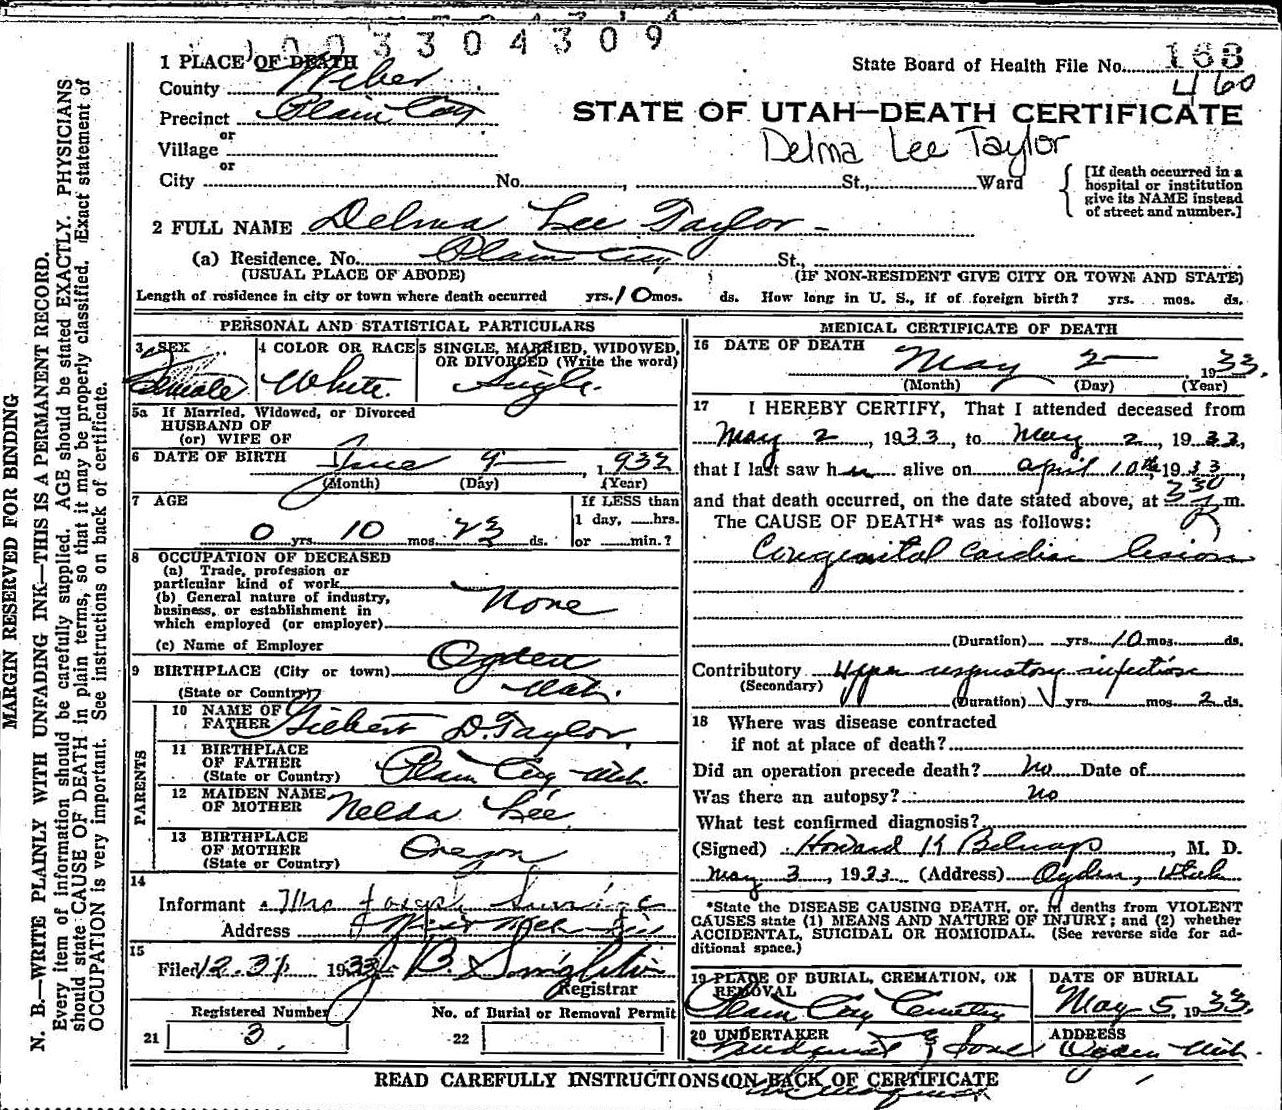 1003304309
1 PLACE OF DEATH
County Weber
State Board of Health File No. 168
460
Precinct Plain City
STATE OF UTAH—DEATH CERTIFICATE
or
Village
Delma Lee Taylor
or
City No. , St., Ward
[If death occurred in a hospital or institution give its NAME instead of street and number.]
2 FULL NAME Delma Lee Taylor
(a) Residence. No. Plain City St.,
(USUAL PLACE OF ABODE) (IF NON-RESIDENT GIVE CITY OR TOWN AND STATE)
Length of residence in city or town where death occurred yrs. 10 mos. ds. How long in U. S., if of foreign birth? yrs. mos. ds.
PERSONAL AND STATISTICAL PARTICULARS
3 SEX
Female
4 COLOR OR RACE
White
5 SINGLE, MARRIED, WIDOWED, OR DIVORCED (Write the word)
Single
5a If Married, Widowed, or Divorced
HUSBAND OF
(or) WIFE OF
6 DATE OF BIRTH June 9 , 1932
(Month) (Day) (Year)
7 AGE
0 yrs. 10 mos. 23 ds.
If LESS than
1 day, hrs.
or min.?
8 OCCUPATION OF DECEASED
(a) Trade, profession or
particular kind of work
(b) General nature of industry,
business, or establishment in
which employed (or employer)
None
(c) Name of Employer
9 BIRTHPLACE (City or town) Ogden
(State or Country) Utah.
PARENTS
10 NAME OF FATHER Gilbert D. Taylor
11 BIRTHPLACE OF FATHER
(State or Country) Plain City Utah.
12 MAIDEN NAME OF MOTHER Nelda Lee
13 BIRTHPLACE OF MOTHER
(State or Country) Oregon
14
Informant Mrs Joseph
Address
15
Filed 12.31 1933 Singleton
Registrar
Registered Number
21 3.
No. of Burial or Removal Permit
22
MEDICAL CERTIFICATE OF DEATH
16 DATE OF DEATH
May 2 1933.
(Month) (Day) (Year)
17 I HEREBY CERTIFY, That I attended deceased from
May 2, 1933, to May 2, 1933,
that I last saw her alive on April 10th, 1933,
and that death occurred, on the date stated above, at 330 m.
The CAUSE OF DEATH* was as follows:
Congenital cardiac lesion
(Duration) yrs. 10 mos. ds.
Contributory Upper respiratory infection
(Secondary)
(Duration) yrs. mos. 2 ds.
18 Where was disease contracted
if not at place of death?
Did an operation precede death? No Date of
Was there an autopsy? no
What test confirmed diagnosis?
(Signed) Howard K Belnap, M. D.
May 3, 1933 (Address) Ogden, Utah
*State the DISEASE CAUSING DEATH, or, in deaths from VIOLENT
CAUSES state (1) MEANS AND NATURE OF INJURY; and (2) whether
ACCIDENTAL, SUICIDAL OR HOMICIDAL. (See reverse side for ad-
ditional space.)
19 PLACE OF BURIAL, CREMATION, OR REMOVAL
Plain City Cemetery
DATE OF BURIAL
May 5, 1933.
20 UNDERTAKER
& Sons
ADDRESS
Ogden Utah.
READ CAREFULLY INSTRUCTIONS ON BACK OF CERTIFICATE
MARGIN RESERVED FOR BINDING
N. B.—WRITE PLAINLY WITH UNFADING INK—THIS IS A PERMANENT RECORD.
Every item of information should be carefully supplied. AGE should be stated EXACTLY. PHYSICIANS
should state CAUSE OF DEATH in plain terms, so that it may be properly classified. Exact statement of
OCCUPATION is very important. See instructions on back of certificate.